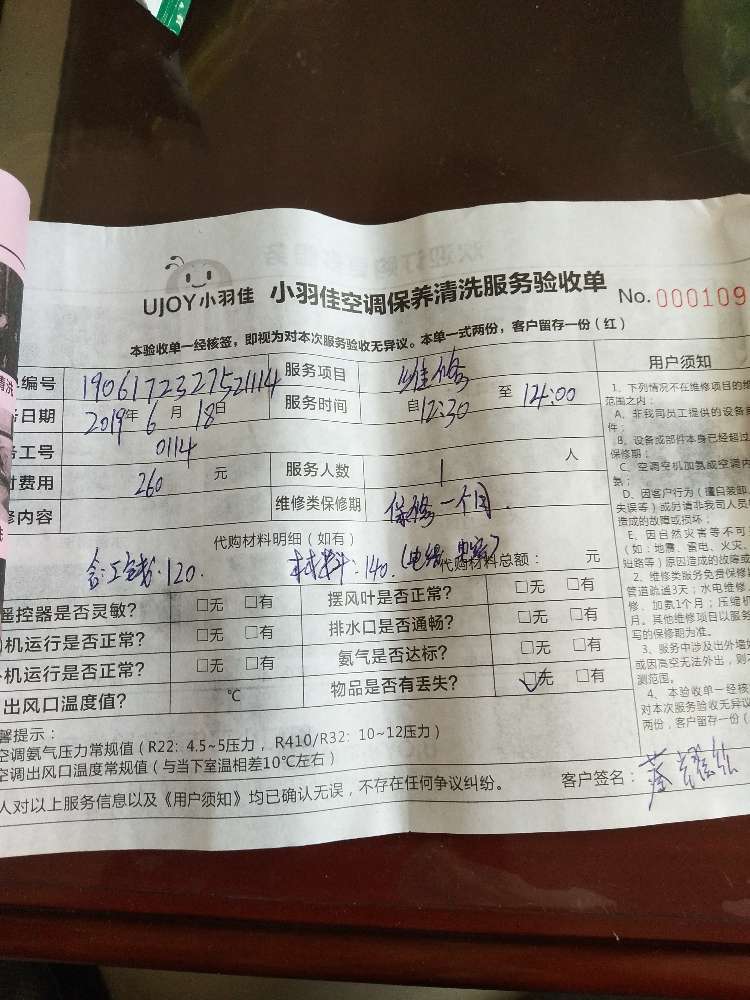 UJOY小羽佳 小羽佳空调保养清洗服务验收单 No. 000109
本验收单一经核签，即视为对本次服务验收无异议。本单一式两份，客户留存一份（红）
编号 190617232752114 服务项目 维修
日期 2019年 6 月 18日 服务时间 自12:30 至 14:00
工号 0114
费用 260 元 服务人数 1 人
修内容 维修类保修期 保修一个月
代购材料明细（如有）
120. 材料:140.(电线 代购材料总额： 元
遥控器是否灵敏？ □无 □有 摆风叶是否正常？ □无 □有
机运行是否正常？ □无 □有 排水口是否通畅？ □无 □有
机运行是否正常？ □无 □有 氨气是否达标？ □无 □有
出风口温度值？ ℃ 物品是否有丢失？ □无 □有
馨提示：
空调氨气压力常规值（R22：4.5~5压力，R410/R32：10~12压力）
空调出风口温度常规值（与当下室温相差10℃左右）
人对以上服务信息以及《用户须知》均已确认无误，不存在任何争议纠纷。 客户签名：
用户须知
1、下列情况不在维修项目的维
范围之内：
A、非我司员工提供的设备
件；
B、设备或部件本身已经超过
保修期；
C、空调空机加氨或空调内
氨；
D、因客户行为（擅自装卸、
失误等）或另请非我司人员
造成的故障或损坏；
E、因自然灾害等不可
（如：地震、雷电、火灾、
短路等）原因造成的故障或
2、维修类服务免费保修
管道疏通3天；水电维修、
修、加氨1个月；压缩机
月。其他维修项目以服务
写的保修期为准。
3、服务中涉及出外墙
或因高空无法外出，则
测范围。
4、本验收单一经核
对本次服务验收无异议
两份，客户留存一份（